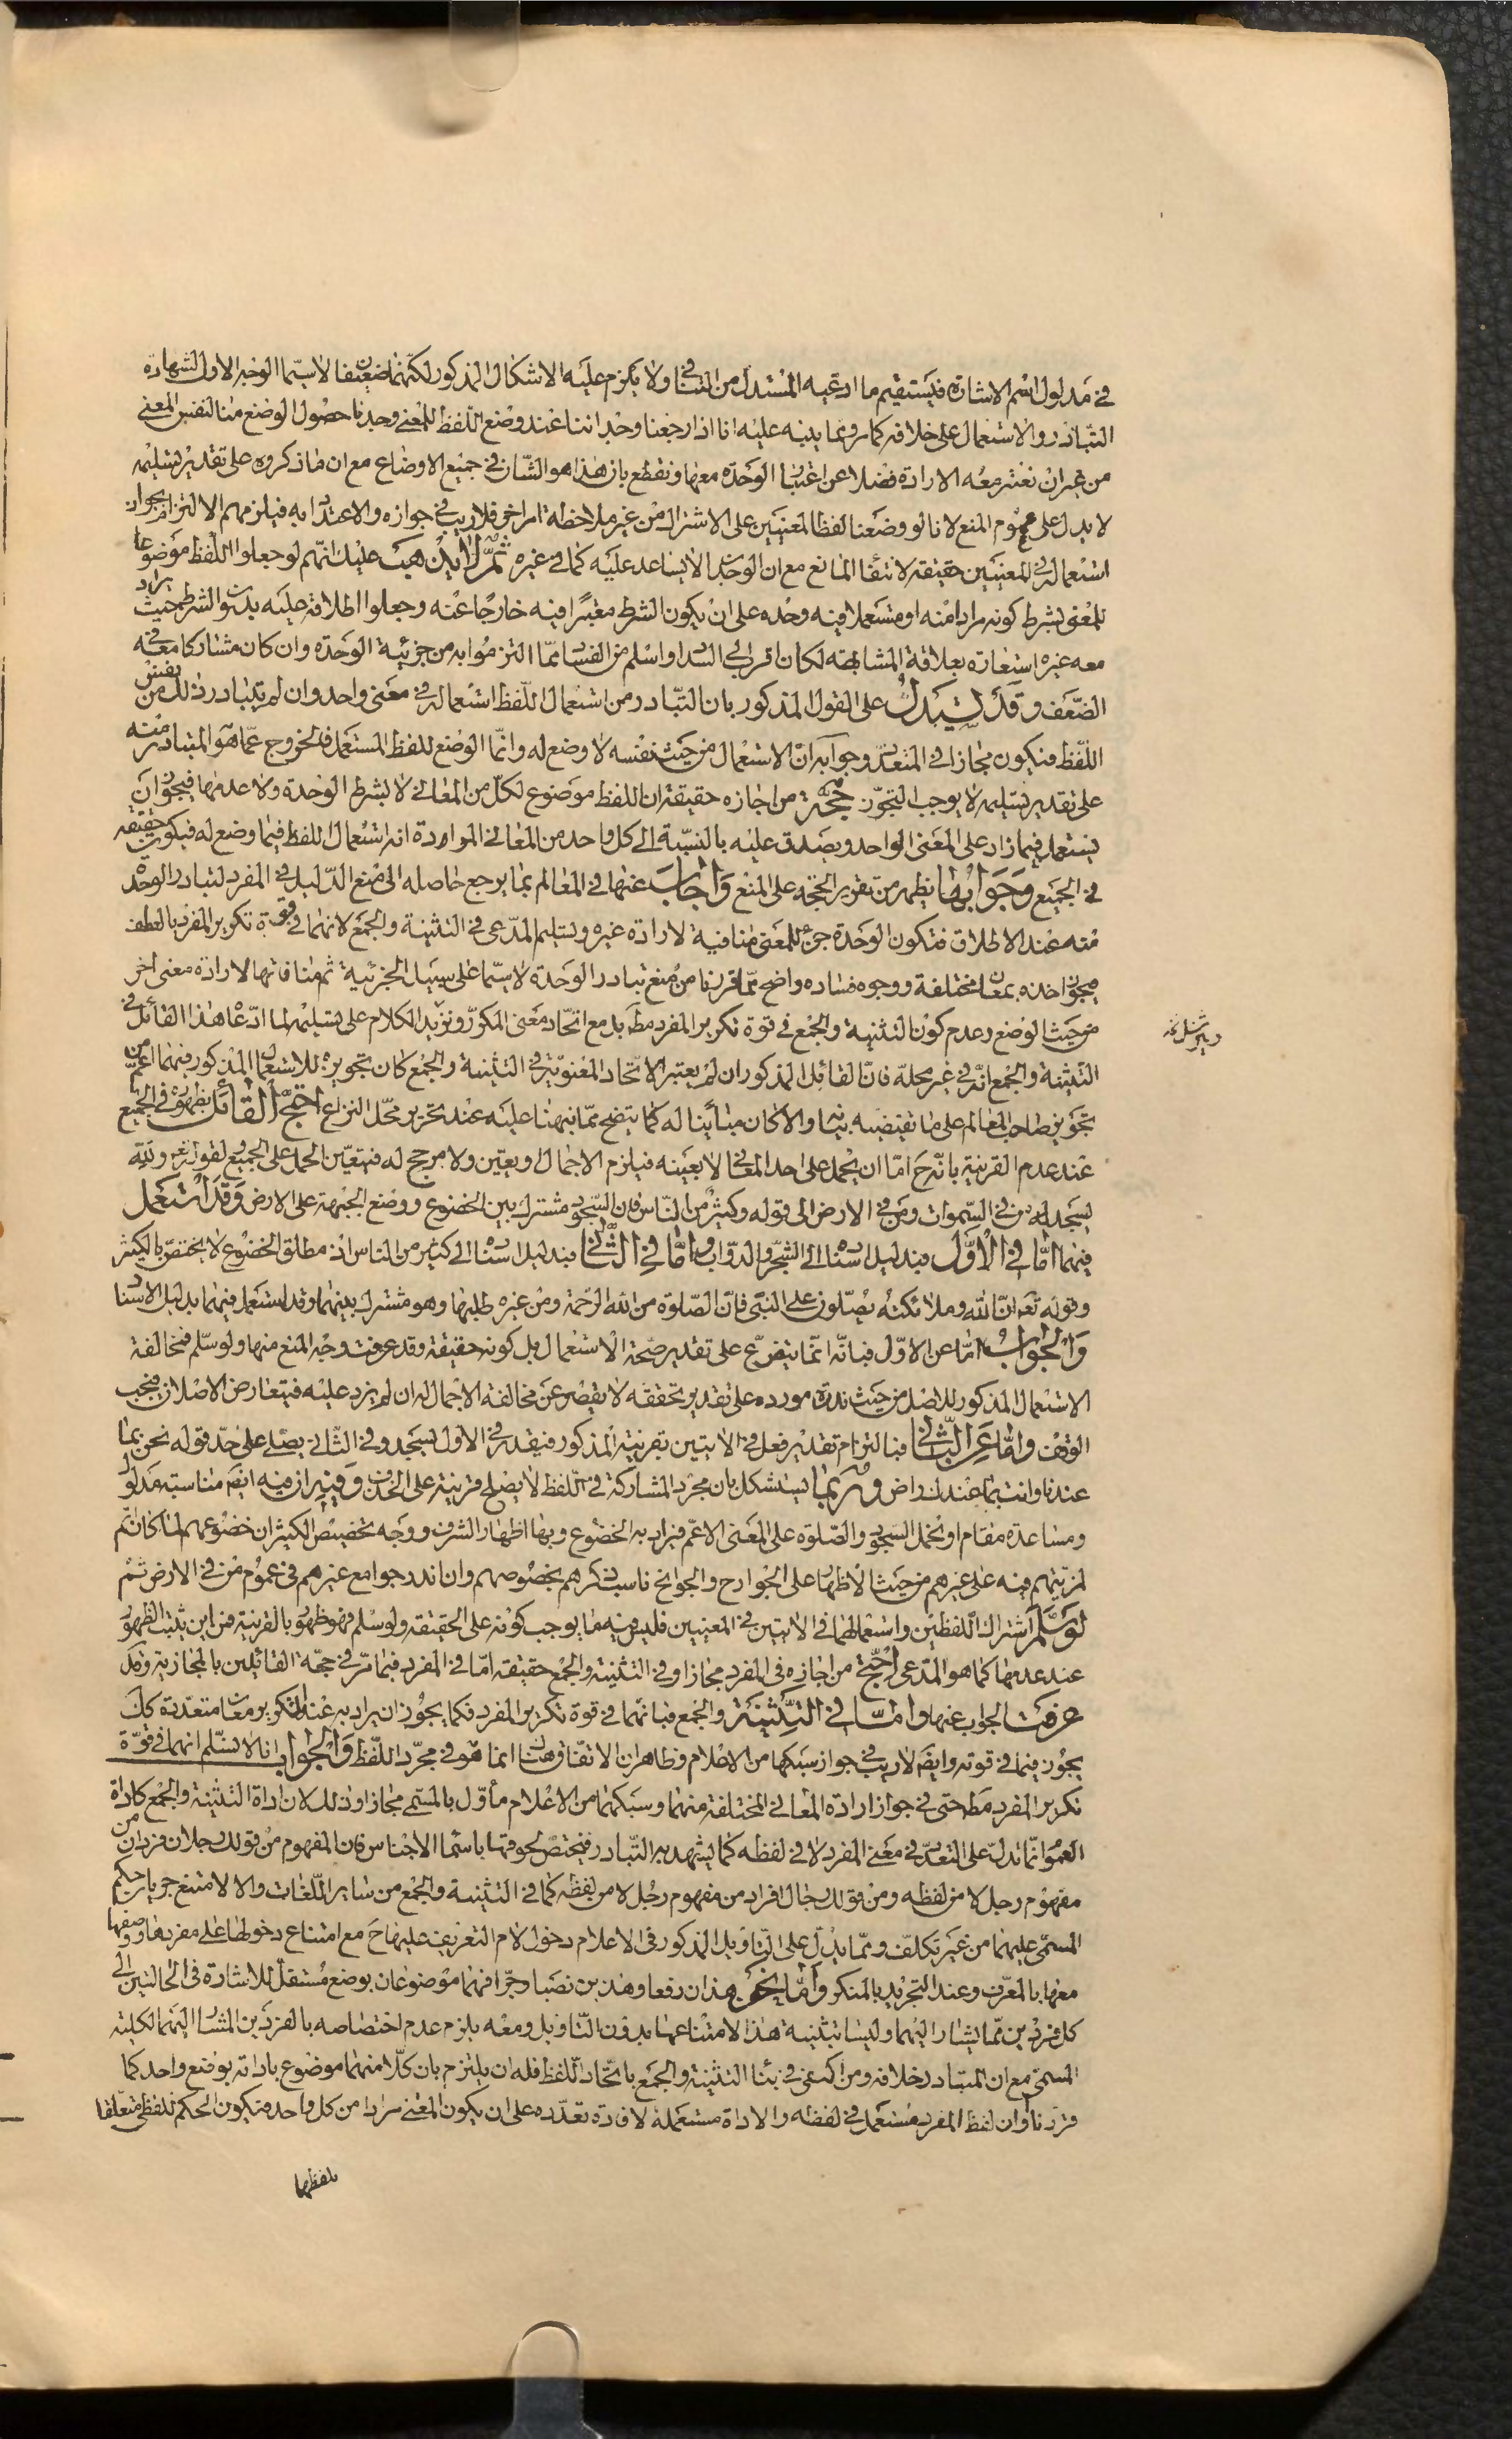 في مدلول اسم الاشارة فيستقيم ما ادعيه المستدل من التنافي ولا يلزم عليه الاشكال المذكور لكنهما ضعيفان لا سيما الوجه الاول لشهادة
التبادر والاستعمال على خلافه كما مر ومما ينبه عليه انا اذا رجعنا وجداننا عند وضع اللفظ للمعنى وجدنا حصول الوضع منا لنفس المعنى
من غير ان نعتبر معه الارادة فضلا عن اعتبار الوحدة معها ونقطع بان هذا هو الشان في جميع الاوضاع مع ان ما ذكروه على تقدير تسليمه
لا يدل على عموم المنع لانا لو وضعنا لفظا لمعنيين على الاشتراك من غير ملاحظة امر اخر فلا ريب في جوازه والاعتداد به فيلزمهم الالتزام بجواز
استعماله في المعنيين حقيقة لانتفاء المانع مع ان الوجدان لا يساعد عليه كما في غيره ثم لا يذهب عليك انهم لو جعلوا اللفظ موضوعا
للمعنى بشرط كونه مرادا منه او مستعملا فيه وحده على ان يكون الشرط معتبرا فيه خارجا عنه وجعلوا اطلاقه عليه بدون الشرط بحيث يراد
معه غيره استعارة بعلاقة المشابهة لكان اقرب الى السداد واسلم من الفساد مما التزموا به من جزئية الوحدة وان كان مشاركا معه في
الضعف وقد يستدل على القول المذكور بان التبادر من استعمال اللفظ استعماله في معنى واحد وان لم يتبادر ذلك من نفس
اللفظ فيكون مجازا في المتعدد وجوابه ان الاستعمال من حيث نفسه لا وضع له وانما الوضع للفظ المستعمل فالخروج عما هو المتبادر منه
على تقدير تسليمه لا يوجب التجوز حجة من اجازه حقيقة ان اللفظ موضوع لكل من المعاني لا بشرط الوحدة ولا عدمها فيجوز ان
يستعمل فيما زاد على المعنى الواحد ويصدق عليه بالنسبة الى كل واحد من المعاني الموارده انه استعمال اللفظ فيما وضع له فيكون حقيقة
في الجميع وجوابها يظهر من تقرير الحجة على المنع واجاب عنها في المعالم بما يرجع حاصله الى منع الدليل في المفرد لتبادر الوحدة
منه عند الاطلاق فتكون الوحدة جزء للمعنى منافية لارادة غيره وتسليم المدعى في التثنية والجمع لانهما في قوة تكرير المفرد بالعطف
فيجوز اخذه بمعان مختلفة ووجوه فساده واضح مما قررنا من منع تبادر الوحدة لا سيما على سبيل الجزئية ثم منافاتها لارادة معنى اخر
من حيث الوضع وعدم كون التثنية والجمع في قوة تكرير المفرد مط بل مع اتحاد معنى المكرر ونزيد الكلام على تسليمه لما ادعاه هذا القائل في
التثنية والجمع انه في غير محله فان القائل المذكور ان لم يعتبر الاتحاد المعنوي في التثنية والجمع كان تجويزه للاستعمال المذكور فيهما اعم من
تجويز صاحب المعالم على ما تقتضيه بيانه والا كان مباينا له كما يتضح مما نبهنا عليه عند تحرير محل النزاع احتج القائل بظهوره في الجميع
عند عدم القرينة بانه ح اما ان يحمل على احد المعاني لا بعينه فيلزم الاجمال او بعين ولا مرجح له فتعين الحمل على الجميع لقوله تع ولله
يسجد من في السموات ومن في الارض الى قوله وكثير من الناس فان السجود مشترك بين الخضوع ووضع الجبهة على الارض وقد استعمل
فيهما اما في الاول فبدليل اسناده الى الشجر والدواب واما في الثاني فبدليل اسناده الى كثير من الناس اذ مطلق الخضوع لا يختص بالكثير
وقوله تع ان الله وملائكته يصلون على النبي فان الصلوة من الله الرحمة ومن غيره طلبها وهو مشترك بينهما وقد استعمل فيهما بدليل الاسناد
والجواب اما عن الاول فبانه انما يتفرع على تقدير صحة الاستعمال بل كونه حقيقة وقد عرفت وجه المنع منها ولو سلم فمخالفة
الاستعمال المذكور للاصل من حيث ندرة مورده على تقدير تحققه لا يقصر عن مخالفة الاجمال له ان لم يزد عليه فيتعارض الاصلان فيجب
الوقف واما عن الثاني فبالتزام تقدير فعل في الايتين بقرينة المذكور فيقدر في الاول يسجد وفي الثاني يصلي على حد قوله نحن بما
عندنا وانت بما عندك راض وربما يستشكل بان مجرد المشاركة في اللفظ لا يصلح قرينة على الحذف وفيه ان فيه ايض مناسبة مدلول
ومساعدة مقام او يحمل السجود والصلوة على المعنى الاعم فيراد به الخضوع وبها اظهار الشرف ووجه تخصيص الكثير ان خضوعهم لما كان اتم
لمزيتهم فيه على غيرهم من حيث الاظهار على الجوارح والجوانح ناسب ذكرهم بخصوصهم وان اندرجوا مع غيرهم في عموم من في الارض ثم
لو سلم اشتراك اللفظين واستعمالهما في الايتين في المعنيين فليس فيه ما يوجب كونه على الحقيقة ولو سلم فهو ظهور بالقرينة فمن اين يثبت الظهور
عند عدمها كما هو المدعى احتج من اجازه في المفرد مجازا وفي التثنية والجمع حقيقة اما في المفرد فبما مر في حجة القائلين بالمجازية وقد
عرفت الجواب عنها واما في التثنية والجمع فبانهما في قوة تكرير المفرد فكما يجوز ان يراد به عند التكرير معان متعددة كك
يجوز فيما في قوته وايض لا ريب في جواز سبكها من الاعلام وظاهر ان الاتفاق هنا انما هو في مجرد اللفظ والجواب انا لا نسلم انهما في قوة
تكرير المفرد مط حتى في جواز ارادة المعاني المختلفة منهما وسبكهما من الاعلام مأول بالمسمى مجازا وذلك لان اداة التثنية والجمع كاداة
العموم انما تدل على التعدد في معنى المفرد لا في لفظه كما يشهد به التبادر فيختص لحوقها باسماء الاجناس فان المفهوم من قولك رجلان فردان من
مفهوم رجل لا من لفظه ومن قولك رجال افراد من مفهوم رجل لا من لفظه كما في التثنية والجمع من ساير اللغات والا لامتنع جريان حكم
المسمى عليهما من غير تكلف ومما يدل على التاويل المذكور في الاعلام دخول لام التعريف عليها ح مع امتناع دخولها على مفردها ووصفها
معها بالمعرف وعند التجريد بالمنكر واما نحو هذان رفعا وهذين نصبا وجرا فهما موضوعان بوضع مستقل للاشارة في الحالتين الى
كل فردين مما يشار اليهما وليسا بتثنية هذا لامتناعها بدون التاويل ومعه يلزم عدم اختصاصه بالفردين المشار اليهما لكلية
المسمى مع ان المتبادر خلافه ومن اكتفى في بناء التثنية والجمع باتحاد اللفظ فله ان يلتزم بان كلا منهما موضوع باداته بوضع واحد كما
قررنا وان لفظ المفرد مستعمل في لفظه والاداة مستعملة لافادة تعدده على ان يكون المعنى مرادا من كل واحد فيكون الحكم للفظي متعلقا
بلفظها